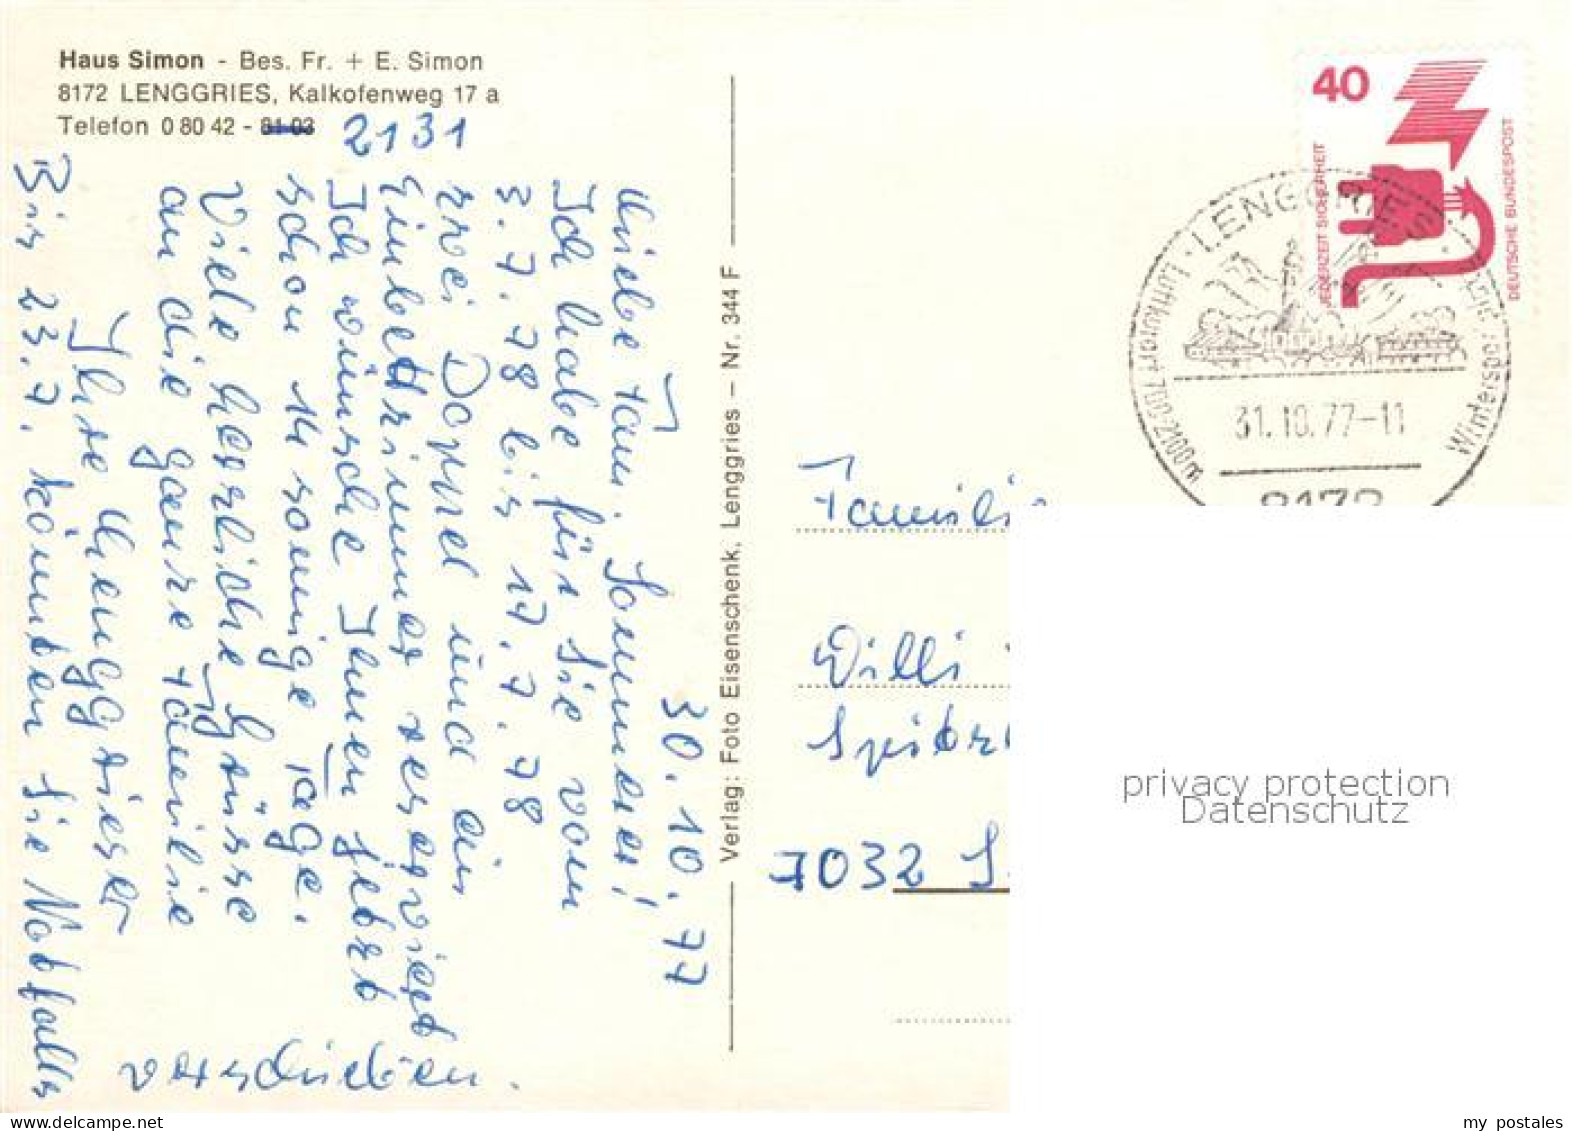 Haus Simon - Bes. Fr. + E. Simon
8172 LENGGRIES, Kalkofenweg 17 a
Telefon 0 80 42 - 81 03 2131
30.10.77
Liebe Fam. Sommerer!
Ich habe für Sie vom
3.7.78 bis 17.7.78
zwei Doppel und ein
Einbettzimmer reserviert
Ich wünsche Ihnen jetzt
schon 14 sonnige Tage.
Viele herzliche Grüsse
an die ganze Familie
Ihre Lenggrieser
Bis 23.7. könnten Sie Notfalls
verschieben.
Verlag: Foto Eisenschenk, Lenggries – Nr. 344 F
40
JEDERZEIT SICHERHEIT
DEUTSCHE BUNDESPOST
LENGGRIES
Luftkurort 700-2100 m
Wintersport
31.10.77-11
8172
Famili
Willi
7032 S
privacy protection
Datenschutz
my postales
www.delcampe.net